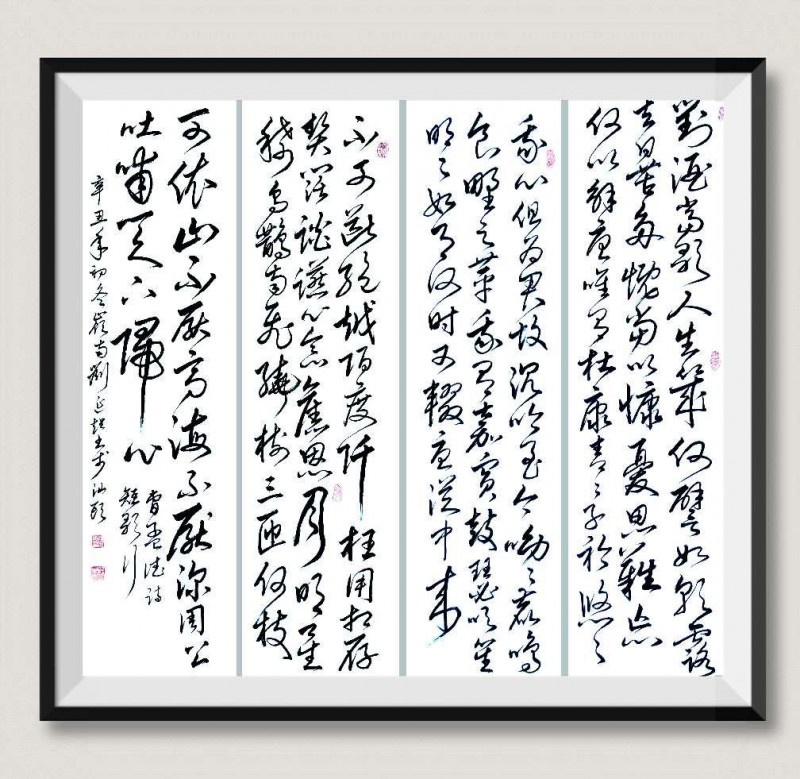 對酒當歌人生幾何譬如朝露
去日苦多慨當以慷憂思難忘
何以解憂唯有杜康青々子衿悠々
我心但為君故沉吟至今呦々鹿鳴
食野之苹我有嘉賓鼓瑟吹笙
明々如月何時可輟憂從中來
不可斷絕越陌度阡枉用相存
契闊談讌心念舊恩月明星
稀烏鵲南飛繞樹三匝何枝
可依山不厭高海不厭深周公
吐哺天下歸心
曹孟德詩
短歌行
辛丑年初冬嶺南劉延書於汕頭